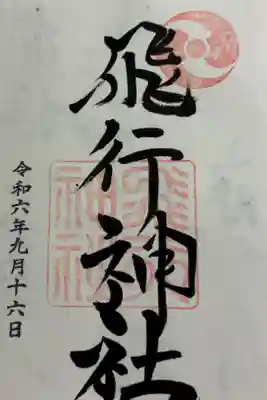 飛行神社
令和六年九月十六日